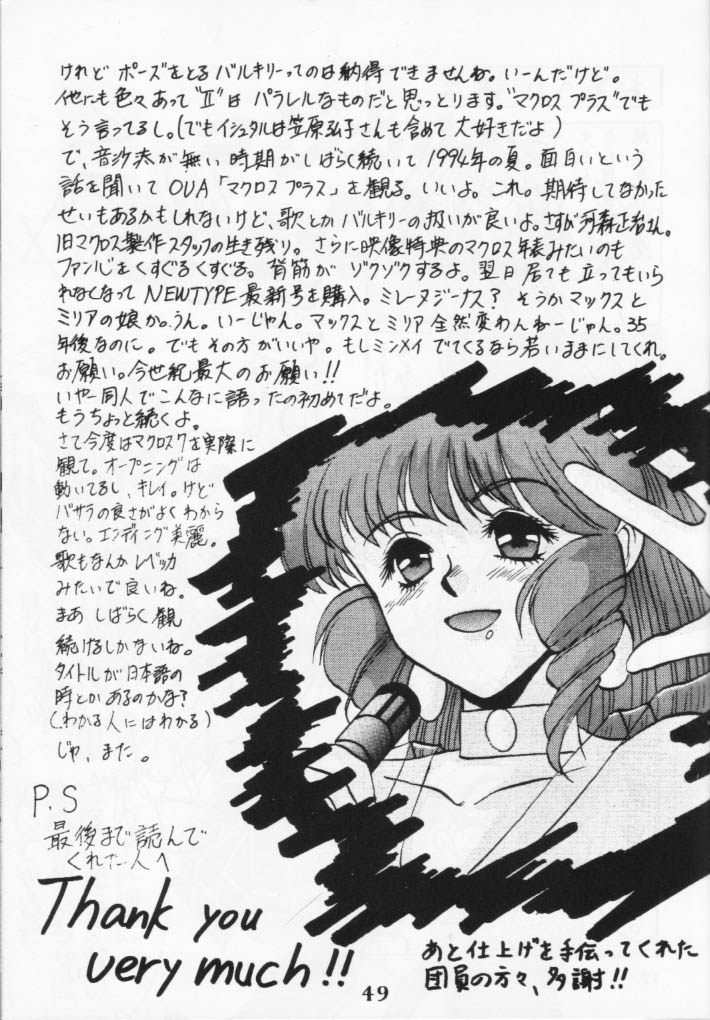 けれど ポーズをとる バルキリーってのは納得できませんね。いーんだけど。
他にも色々あって"Ⅱ"は パラレルなものだと思っとります。"マクロスプラス"でも
そう言ってるし。(でもイシュタルは笠原弘子さんも含めて大好きだよ)
で、音沙汰が無い時期がしばらく続いて1994年の夏。面白いという
話を聞いて OVA「マクロスプラス」を観る。いいよ。これ。期待してなかった
せいもあるかもしれないけど、歌とかバルキリーの扱いが良いよ。さすが河森正治さん。
旧マクロス製作スタッフの生き残り。さらに映像特典のマクロス年表みたいのも
ファン心をくすぐるくすぐる。背筋がゾクゾクするよ。翌日居ても立ってもいら
れなくなってNEWTYPE最新号を購入。ミレーヌジーナス? そうかマックスと
ミリアの娘か。うん。いーじゃん。マックスとミリア全然変わんねーじゃん。35
年後なのに。でもその方がいいや。もしミンメイでてくるなら若いままにしてくれ。
お願い。今世紀最大のお願い!!
いやー同人でこんなに語ったの初めてだよ。
もうちょっと続くよ。
さて今度はマクロス7を実際に
観て。オープニングは
動いてるし、キレイ。けど
バサラの良さがよくわから
ない。エンディング美麗。
歌もなんかレベッカ
みたいで良いね。
まあ しばらく観
続けるしかないね。
タイトルが日本語の
時とかあるのかな?
(わかる人にはわかる)
じゃ、また。
P.S
最後まで読んで
くれた人へ
Thank you
very much!!
あと仕上げを手伝ってくれた
団員の方々、多謝!!
49